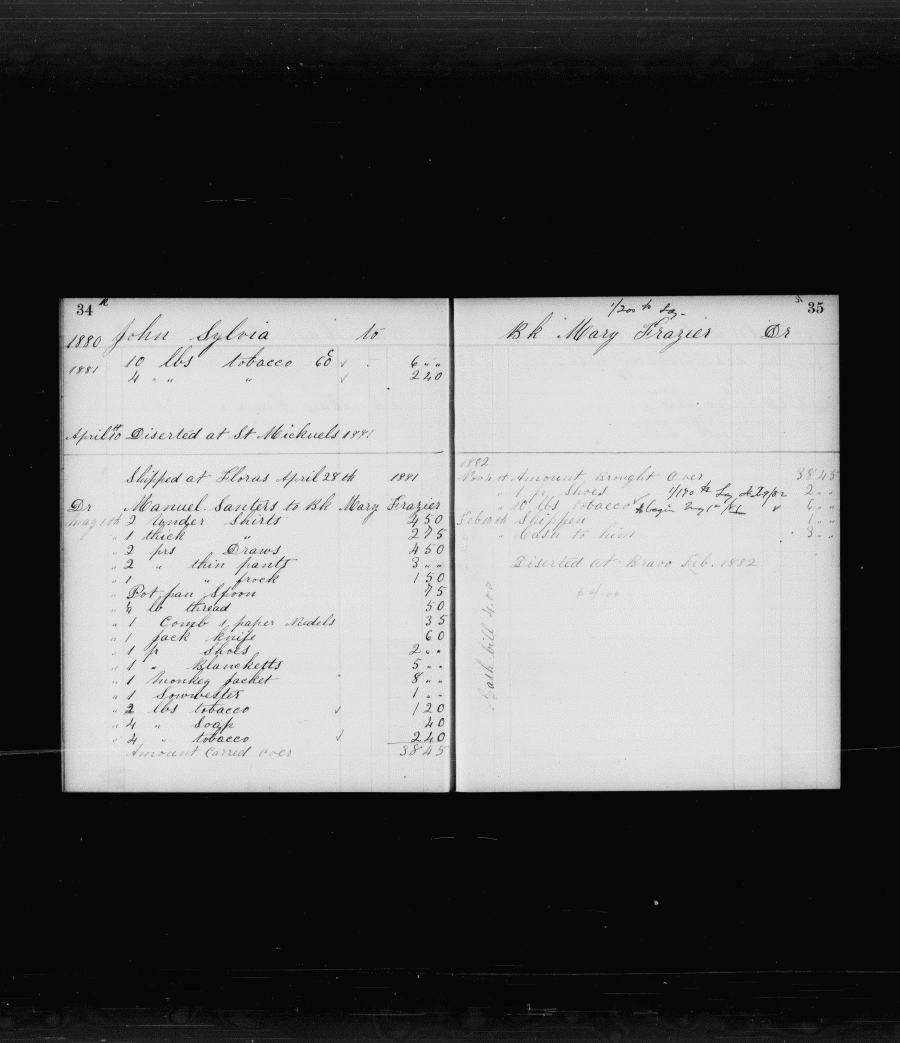 34
1880 John Sylvia to
1881 10 lbs tobacco 60c 6 " "
4 " " " 2 40
April 10th Diserted at St Mickuels 1881
Shipped at Florus April 28th 1881
Dr Manuel Santers to Bk Mary Frazier
2 under Shirts 4 50
" 1 thick " 2 75
" 2 prs Draws 4 50
" 2 " thin pants 3 " "
" 1 " frock 1 50
" Pot pan Spoon 75
" 4 lb thread 50
" 1 Comb 1 paper Nedels 35
" 1 Jack knife 60
" 1 pr Shoes 2 " "
" 1 " Blancketts 5 " "
" 1 monkey Jacket 8 " "
" 1 Sowwester 1 " "
" 2 lbs tobacco 1 20
" 4 " Soap 40
" 4 " tobacco 2 40
Amount Carred over 38 45
35
1/200th Lay
Bk Mary Frazier Dr
1882
Amount Brought Over 38 45
" 1 pr Shoes 1/170th Lay 2 " "
" 10 lbs tobacco to begin 6 " "
Shippen 1 " "
" Cash to him 3 " "
Diserted at Bravo Feb. 1882
Cash bill 4.00